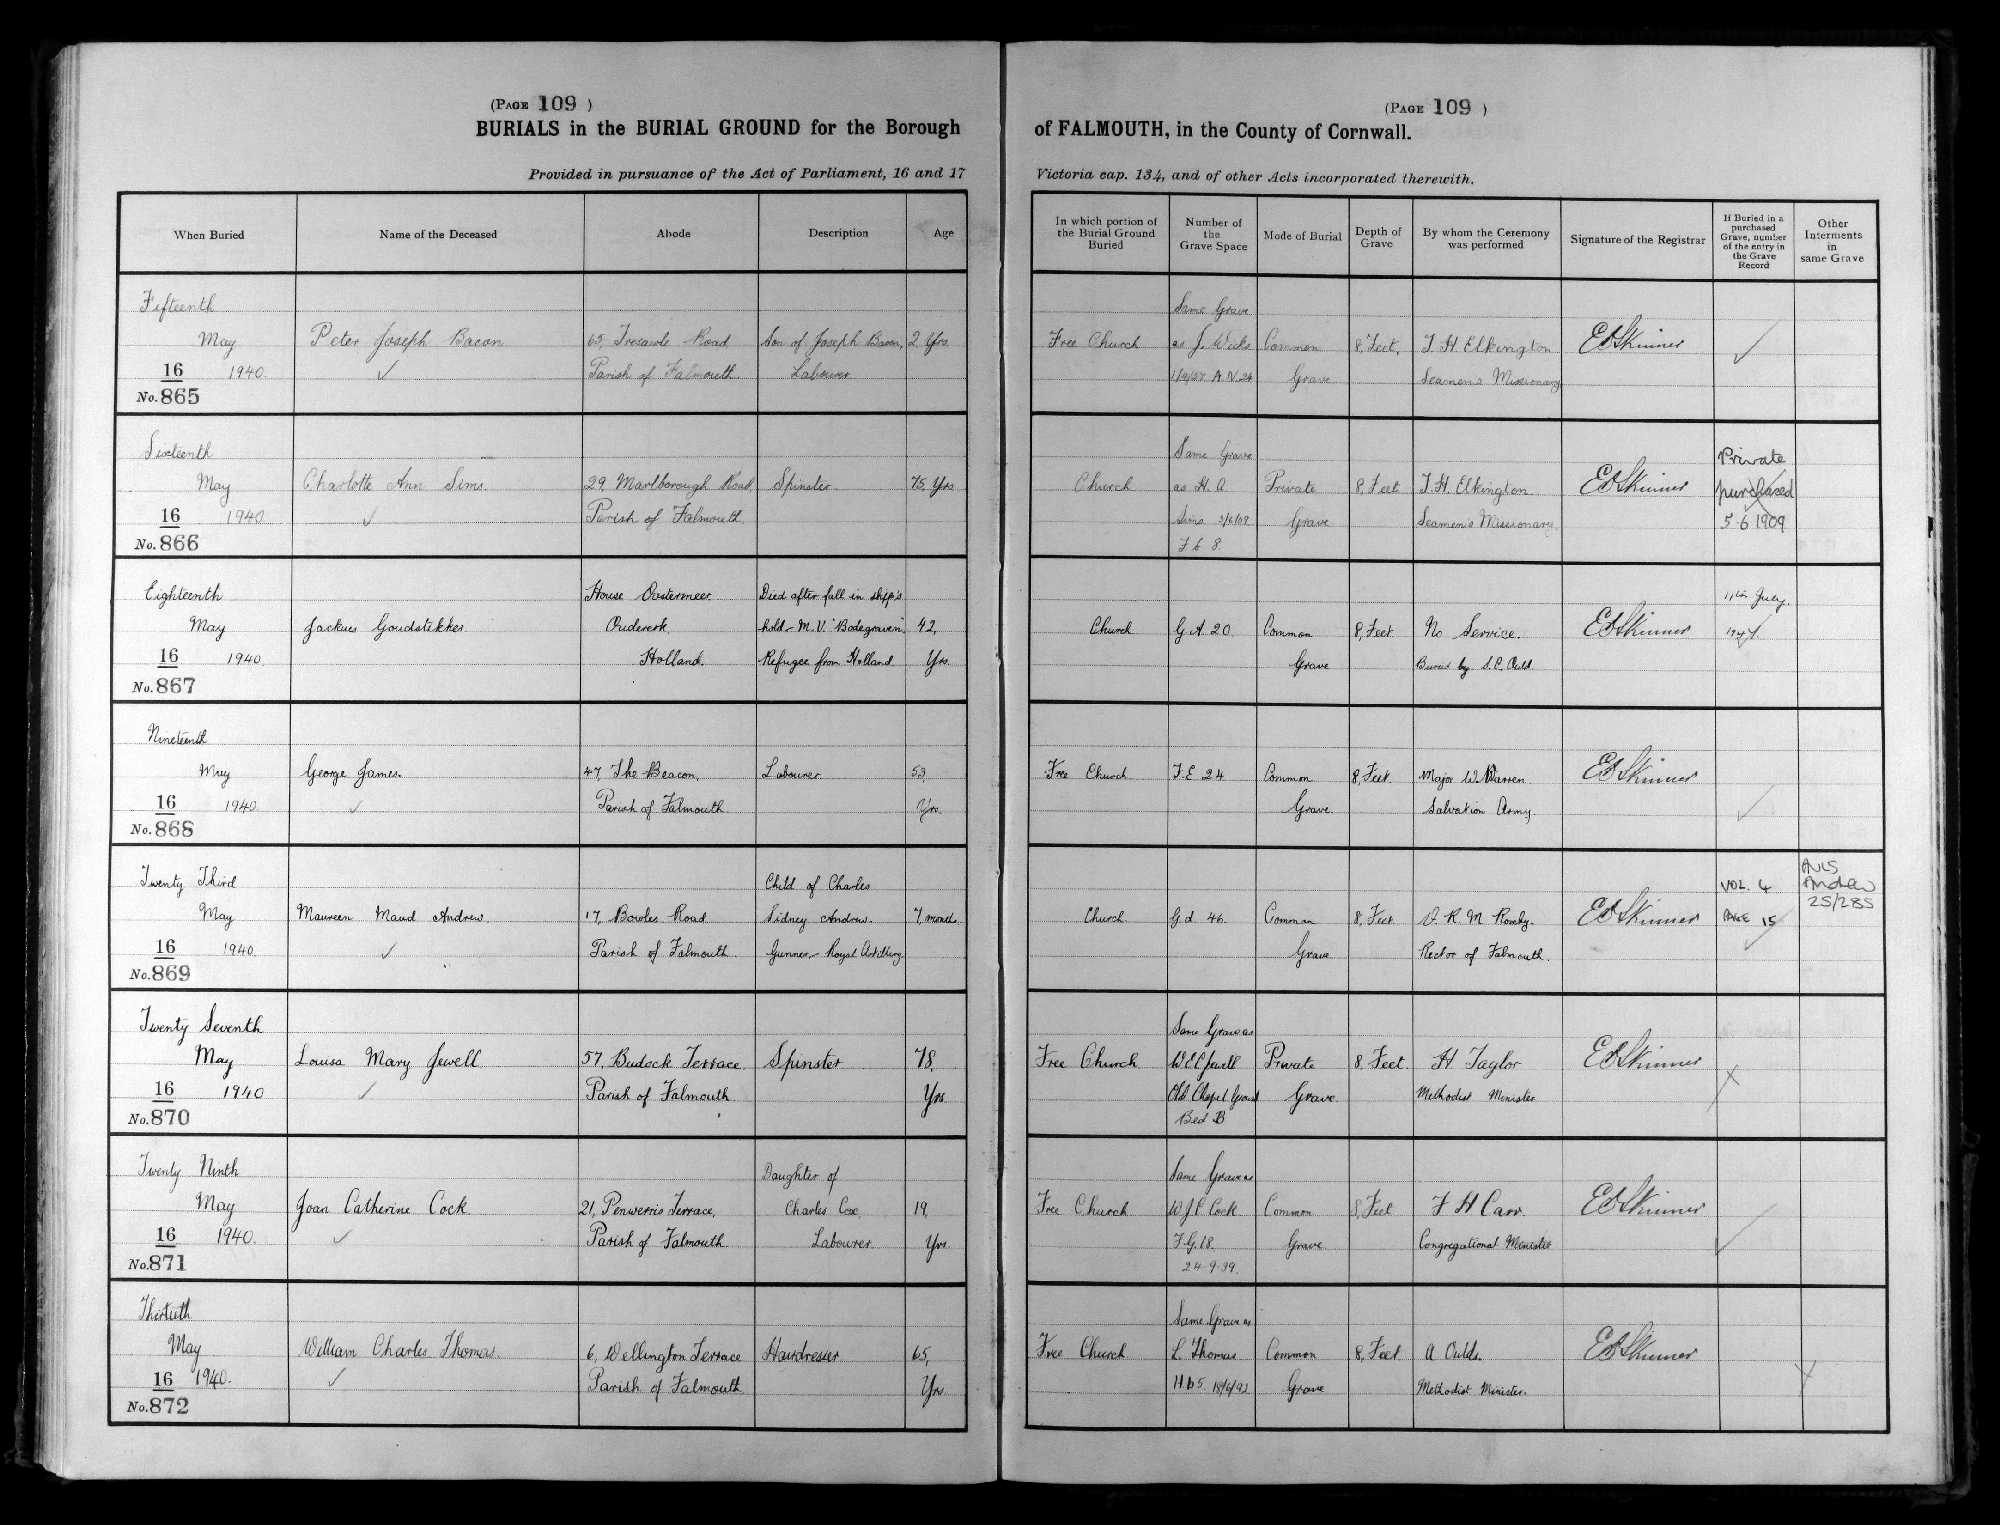 (PAGE 109 )
BURIALS in the BURIAL GROUND for the Borough
Provided in pursuance of the Act of Parliament, 16 and 17
When Buried
Name of the Deceased
Abode
Description
Age
Fifteenth
May
16 1940.
No. 865
Peter Joseph Bacon
65, Road
Parish of Falmouth
Son of Joseph Bacon,
Labourer
2 Yrs
Sixteenth
May
16 1940
No. 866
Charlotte Ann Sims.
29, Marlborough Road,
Parish of Falmouth
Spinster.
75, Yrs
Eighteenth
May
16 1940.
No. 867
Jackus Goudstikker
House Oostermeer
Ouderkerk
Holland.
Died after fall in ship's
hold - M.V. "Bodegraven",
Refugee from Holland
42,
Yrs.
Nineteenth
May
16 1940.
No. 868
George James.
47, The Beacon,
Parish of Falmouth
Labourer
53
Yrs.
Twenty Third
May
16 1940.
No. 869
Maureen Maud Andrew
17, Bowles Road
Parish of Falmouth.
Child of Charles
Sidney Andrew.
Gunner - Royal Artillery
7, months
Twenty Seventh
May
16 1940
No. 870
Louisa Mary Jewell
57, Budock Terrace.
Parish of Falmouth
Spinster
78,
Yrs
Twenty Ninth
May
16 1940.
No. 871
Joan Catherine Cock
21, Penwerris Terrace,
Parish of Falmouth
Daughter of
Charles Cox,
Labourer
19,
Yrs
Thirtieth
May
16 1940.
No. 872
William Charles Thomas.
6, Wellington Terrace
Parish of Falmouth
Hairdresser
65,
Yrs
(PAGE 109 )
of FALMOUTH, in the County of Cornwall.
Victoria cap. 134, and of other Acts incorporated therewith.
In which portion of
the Burial Ground
Buried
Number of
the
Grave Space
Mode of Burial
Depth of
Grave
By whom the Ceremony
was performed
Signature of the Registrar
If Buried in a
purchased
Grave, number
of the entry in
the Grave
Record
Other
Interments
in
same Grave
Free Church
Same Grave
as J. Weeks
Common
Grave
8, Feet,
T H Elkington
Seamens Missionary
E Skinner
Church
Same Grave
as H. A
Sims
F b 8.
Private
Grave
8, Feet
T. H. Elkington
Seamen's Missionary.
E Skinner
Private
purchased
5.6 1909
Church
G A 20.
Common
Grave
8, Feet
No Service.
Buried by S. P. Auld
E Skinner
11th July.
Free Church
F. E 24
Common
Grave
8, Feet.
Major W. Warren
Salvation Army
E Skinner
Church
G d 46.
Common
Grave
8, Feet
R M
Rector of Falmouth.
E Skinner
VOL. 4
PAGE 15
Avis
Andrew
25/285
Free Church
Same Grave as
W E C Jewell
Old Chapel Ground
Bed B
Private
Grave.
8, Feet.
H Taylor
Methodist Minister
E Skinner
Free Church
Same Grave as
W J C Cock
F. G. 18.
24-9-39.
Common
Grave
8, Feet
F H Carr.
Congregational Minister
E Skinner
Free Church
Same Grave as
L. Thomas
H b 5 18/6/92
Common
Grave
8, Feet
A Aulds.
Methodist Minister.
E Skinner